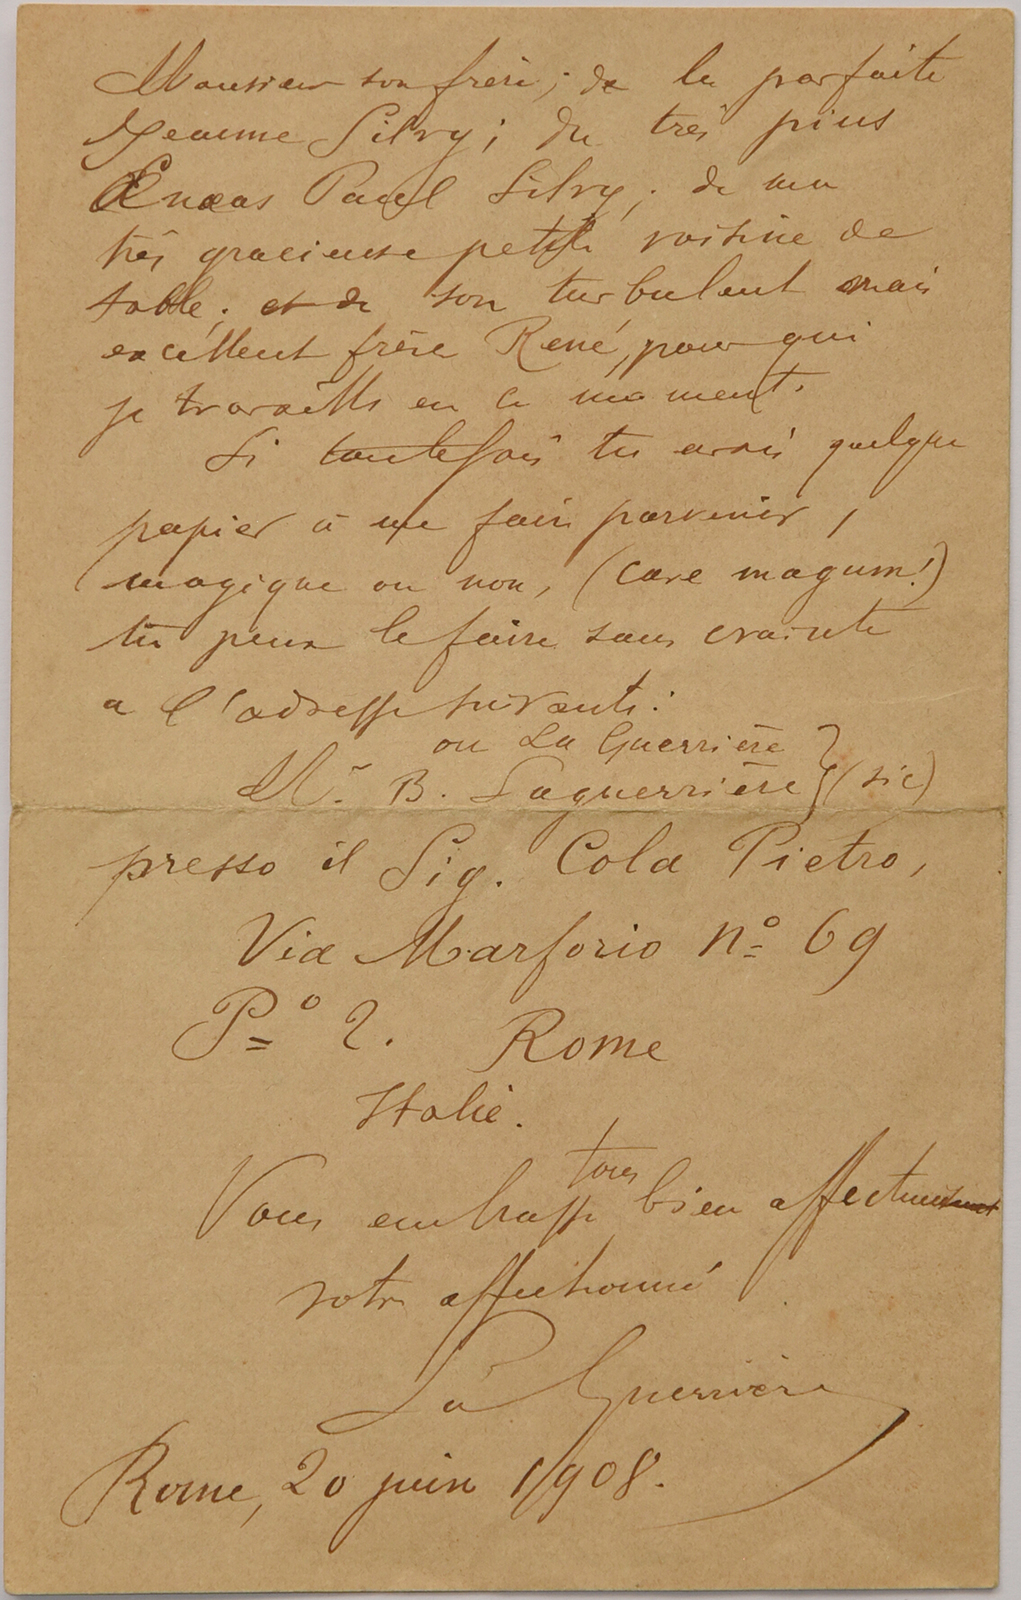 Monsieur son frère ; de la parfaite
Jeanne Silvy ; du très pius
Æneas Paul Silvy ; de ma
très gracieuse petite voisine de
table ; et de son turbulent mais
excellent frère René, pour qui
je travaille en ce moment.
Si toutefois tu avais quelque
papier à me faire parvenir,
magique ou non, (cave magum!)
tu peux le faire sans crainte
a l'adresse suivante :
ou La Guerrière
Mr. B. Laguerrière } (sic)
presso il Sig. Cola Pietro,
Via Marforio nº 69
Pº 2. Rome
Italie.
Vous embrasse tous bien affectueusement
votre affectionné
La Guerrière
Rome, 20 juin 1908.